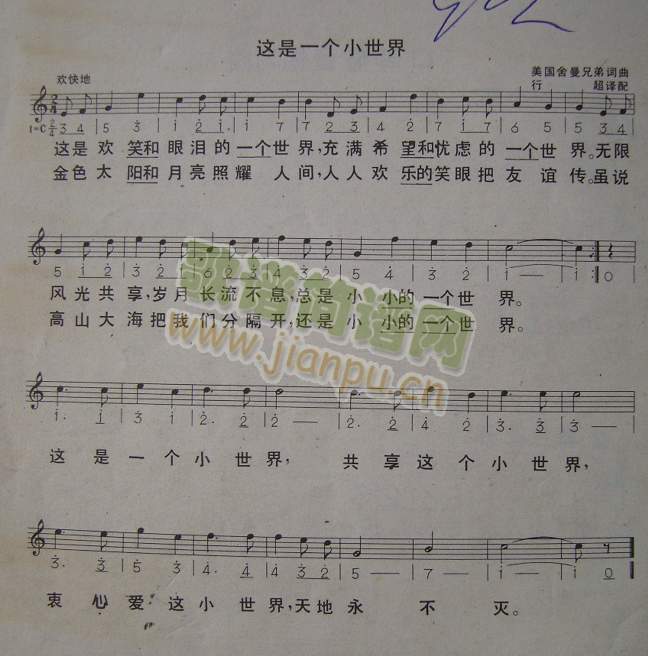 这是一个小世界
欢快地
美国舍曼兄弟词曲
行 超译配
1=C 2/4
3 4 | 5 3 | i 2 i | i 7 | 7 2 3 | 4 2 | 7 2 i | 7 6 | 5 5 | 3 4
这是欢笑和眼泪的一个世界,充满希望和忧虑的一个世界。无限
金色太阳和月亮照耀 人间,人人欢乐的笑眼把友谊传。虽说
风光共享,岁月长流不息,总是小小的一个世 界。
高山大海把我们分隔开,还是小小的一个世 界。
歌谱简谱网
www.jianpu.cn
i. i | 3 i | 2. 2 | 2 — | 2. 2 | 4 2 | 3. 3 | 3 —
这是一个小世界, 共享这个小世界,
3. 3 | 5 3 | 4. 4 | 4 3 2 | 5 — | 7 — | i — | i 0
衷心爱这小世界,天地永不灭。